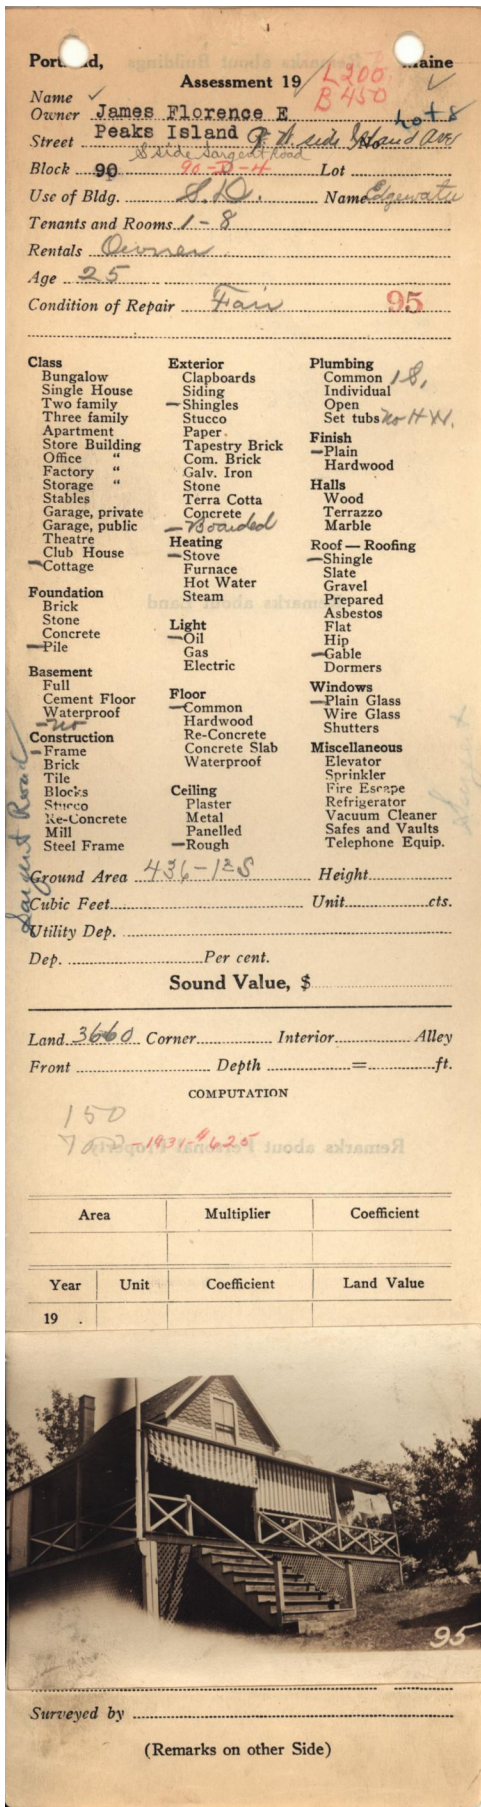 Portland, Maine
Assessment 19
L 200
B 450
Name ✓
Owner James Florence E Lot 8
Street Peaks Island side Island Ave
S side Sargent Road
Block 90 90-D-4 Lot
Use of Bldg. S.D. Name Edgewater
Tenants and Rooms 1-8
Rentals Owner
Age 25
Condition of Repair Fair 95
Class
Bungalow
Single House
Two family
Three family
Apartment
Store Building
Office "
Factory "
Storage "
Stables
Garage, private
Garage, public
Theatre
Club House
-Cottage
Foundation
Brick
Stone
Concrete
-Pile
Basement
Full
Cement Floor
Waterproof
-no
Construction
-Frame
Brick
Tile
Blocks
Stucco
Re-Concrete
Mill
Steel Frame
Exterior
Clapboards
Siding
-Shingles
Stucco
Paper
Tapestry Brick
Com. Brick
Galv. Iron
Stone
Terra Cotta
Concrete
-Boarded
Heating
-Stove
Furnace
Hot Water
Steam
Light
-Oil
Gas
Electric
Floor
-Common
Hardwood
Re-Concrete
Concrete Slab
Waterproof
Ceiling
Plaster
Metal
Panelled
-Rough
Plumbing
Common 1 S.
Individual
Open
Set tubs no H W.
Finish
-Plain
Hardwood
Halls
Wood
Terrazzo
Marble
Roof — Roofing
-Shingle
Slate
Gravel
Prepared
Asbestos
Flat
Hip
-Gable
Dormers
Windows
-Plain Glass
Wire Glass
Shutters
Miscellaneous
Elevator
Sprinkler
Fire Escape
Refrigerator
Vacuum Cleaner
Safes and Vaults
Telephone Equip.
Sargent Road
Sargent
Ground Area 436-1 S Height
Cubic Feet Unit cts.
Utility Dep.
Dep. Per cent.
Sound Value, $
Land 3660 Corner Interior Alley
Front Depth = ft.
COMPUTATION
150
-1931-$625
Area Multiplier Coefficient
Year Unit Coefficient Land Value
19 .
95
Surveyed by
(Remarks on other Side)